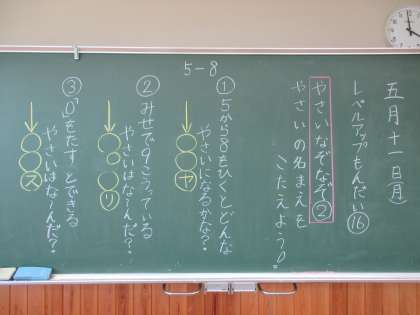 五月十一日(月)
レベルアップもんだい⑯
やさいなぞなぞ②
やさいの名まえを
こたえよう!
5-8
①5から8もひくとどんな
やさいになるかな?
ヤ
②みせで9こうっている
やさいはな〜んだ?
リ
③「0」をたすとできる
やさいはな〜んだ?
ス